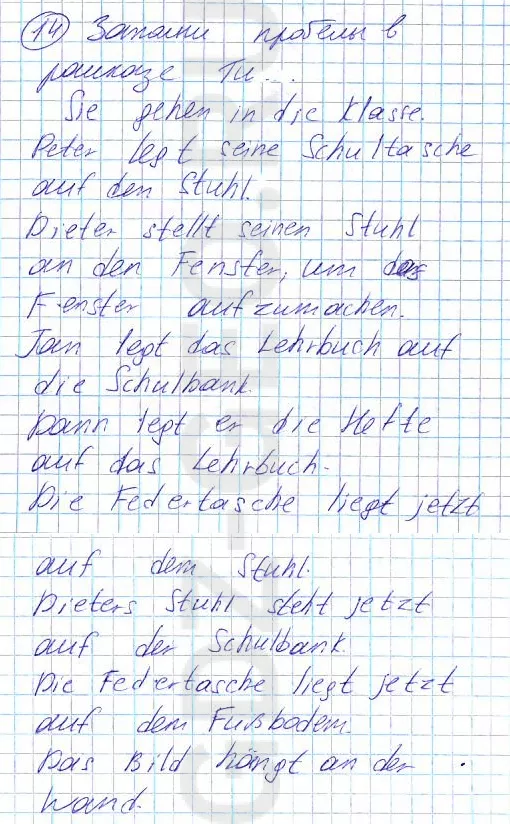 14 Заполни пробелы в
рассказе Ти...
Sie gehen in die Klasse.
Peter legt seine Schultasche
auf den Stuhl.
Dieter stellt seinen Stuhl
an den Fenster, um das
Fenster aufzumachen.
Jan legt das Lehrbuch auf
die Schulbank.
Dann legt er die Hefte
auf das Lehrbuch.
Die Federtasche liegt jetzt
auf dem Stuhl.
Dieters Stuhl steht jetzt
auf der Schulbank.
Die Federtasche liegt jetzt
auf dem Fußbodem.
Das Bild hängt an der
Wand.
GDZ-GLEO.RU